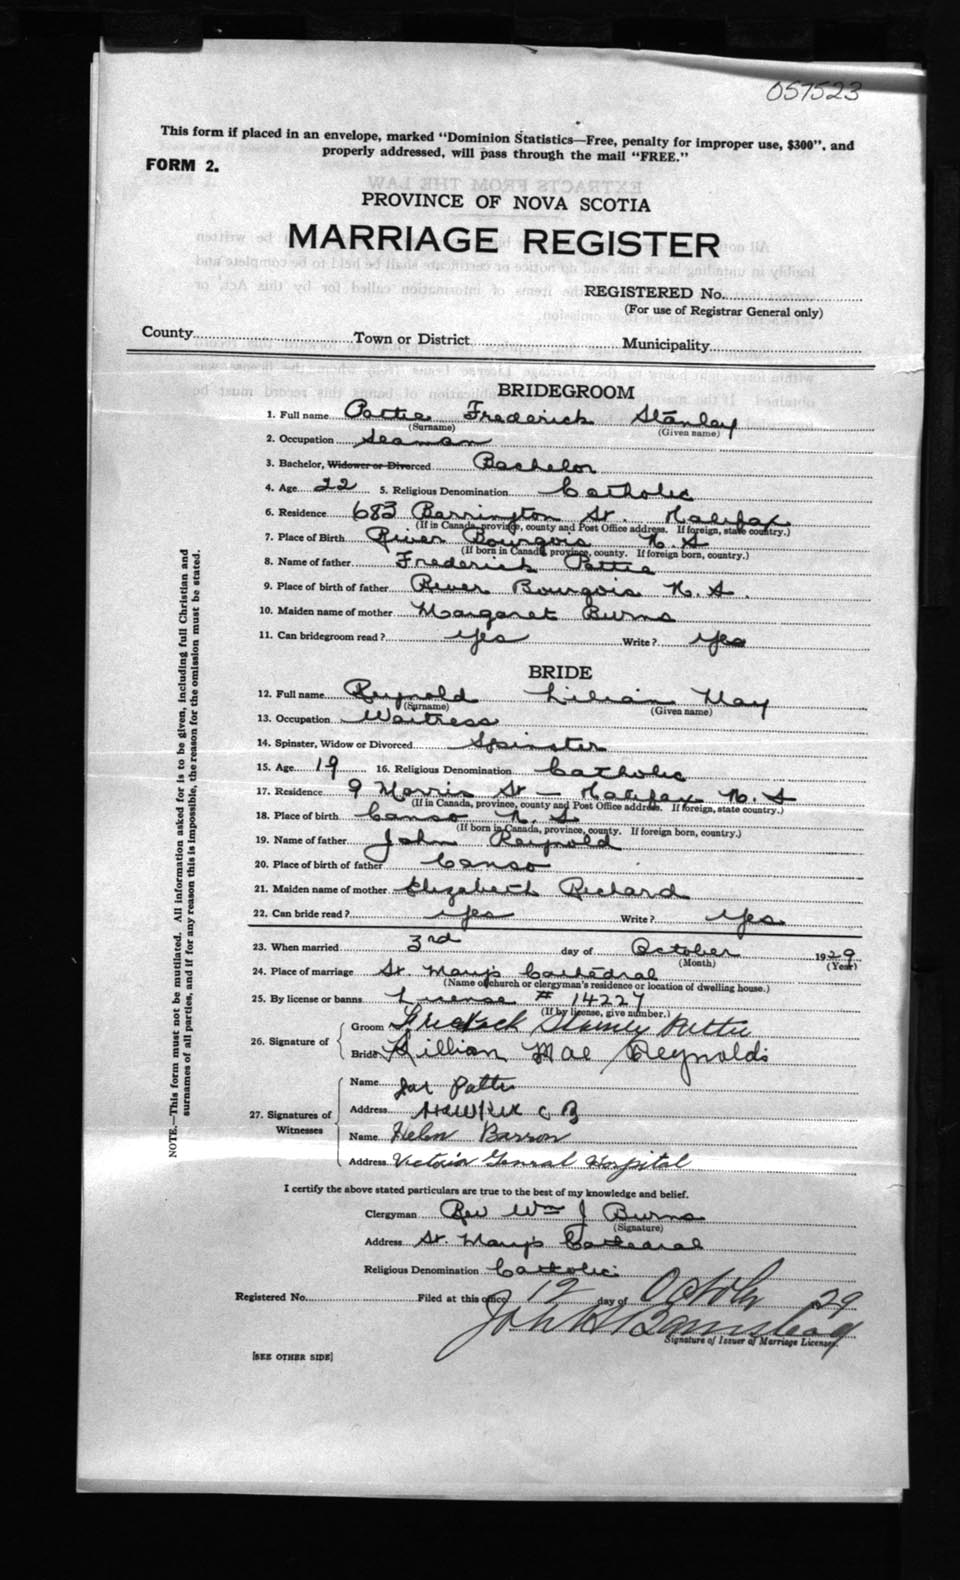 057523
This form if placed in an envelope, marked "Dominion Statistics—Free, penalty for improper use, $300", and
properly addressed, will pass through the mail "FREE."
FORM 2.
PROVINCE OF NOVA SCOTIA
MARRIAGE REGISTER
REGISTERED No.
(For use of Registrar General only)
County Town or District Municipality
BRIDEGROOM
1. Full name Pattie Frederick Stanley
(Surname) (Given name)
2. Occupation Seaman
3. Bachelor, Widower or Divorced Bachelor
4. Age 22 5. Religious Denomination Catholic
6. Residence 683 Barrington St. Halifax
(If in Canada, province, county and Post Office address. If foreign, state country.)
7. Place of Birth River Bourgois N.S
(If born in Canada, province, county. If foreign born, country.)
8. Name of father Frederick Pattie
9. Place of birth of father River Bourgois N.S.
10. Maiden name of mother Margaret Burns
11. Can bridegroom read? yes Write? yes
BRIDE
12. Full name Reynold Lilian May
(Surname) (Given name)
13. Occupation Waitress
14. Spinster, Widow or Divorced Spinster
15. Age 19 16. Religious Denomination Catholic
17. Residence 9 Morris St — Halifax N.S
(If in Canada, province, county and Post Office address. If foreign, state country.)
18. Place of birth Canso N.S.
(If born in Canada, province, county. If foreign born, country.)
19. Name of father John Reynold
20. Place of birth of father Canso
21. Maiden name of mother Elizabeth Richard
22. Can bride read? yes Write? yes
23. When married 3rd day of October 1929
(Month) (Year)
24. Place of marriage St. Mary's Cathedral
(Name of church or clergyman's residence or location of dwelling house.)
25. By license or banns License # 14227
(If by license, give number.)
26. Signature of Groom Stanley Pattie
Bride Lillian Mae Reynolds
27. Signatures of Witnesses
Name Pattie
Address C B
Name Helen Barron
Address Victoria General Hospital
I certify the above stated particulars are true to the best of my knowledge and belief.
Clergyman Rev Wm J Burns
(Signature)
Address St. Mary's Cathedral
Religious Denomination Catholic
Registered No. Filed at this office 12 day of October 29
John H Barnstead
Signature of Issuer of Marriage Licenses.
[SEE OTHER SIDE]
NOTE.—This form must not be mutilated. All information asked for is to be given, including full Christian and
surnames of all parties, and if for any reason this is impossible, the reason for the omission must be stated.